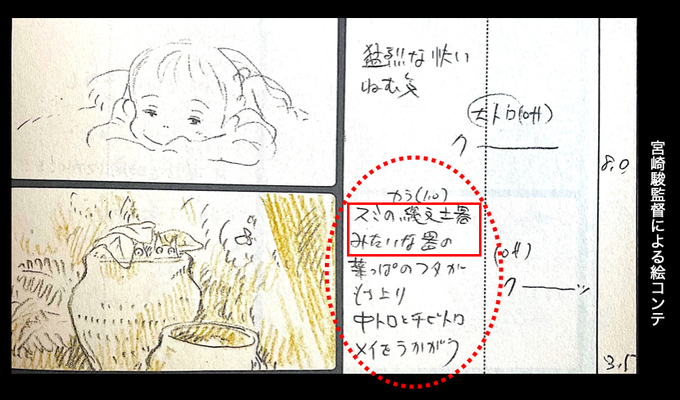 猛烈な快い
ねむ気
大トロ(off)
ク
8.0
カラ(1.0)
スミの縄文土器
みたいな器の
葉っぱのフタが
もち上り
中トロとチビトロ
メイをうかがう
(off)
ク
3.5
宮崎駿監督による絵コンテ